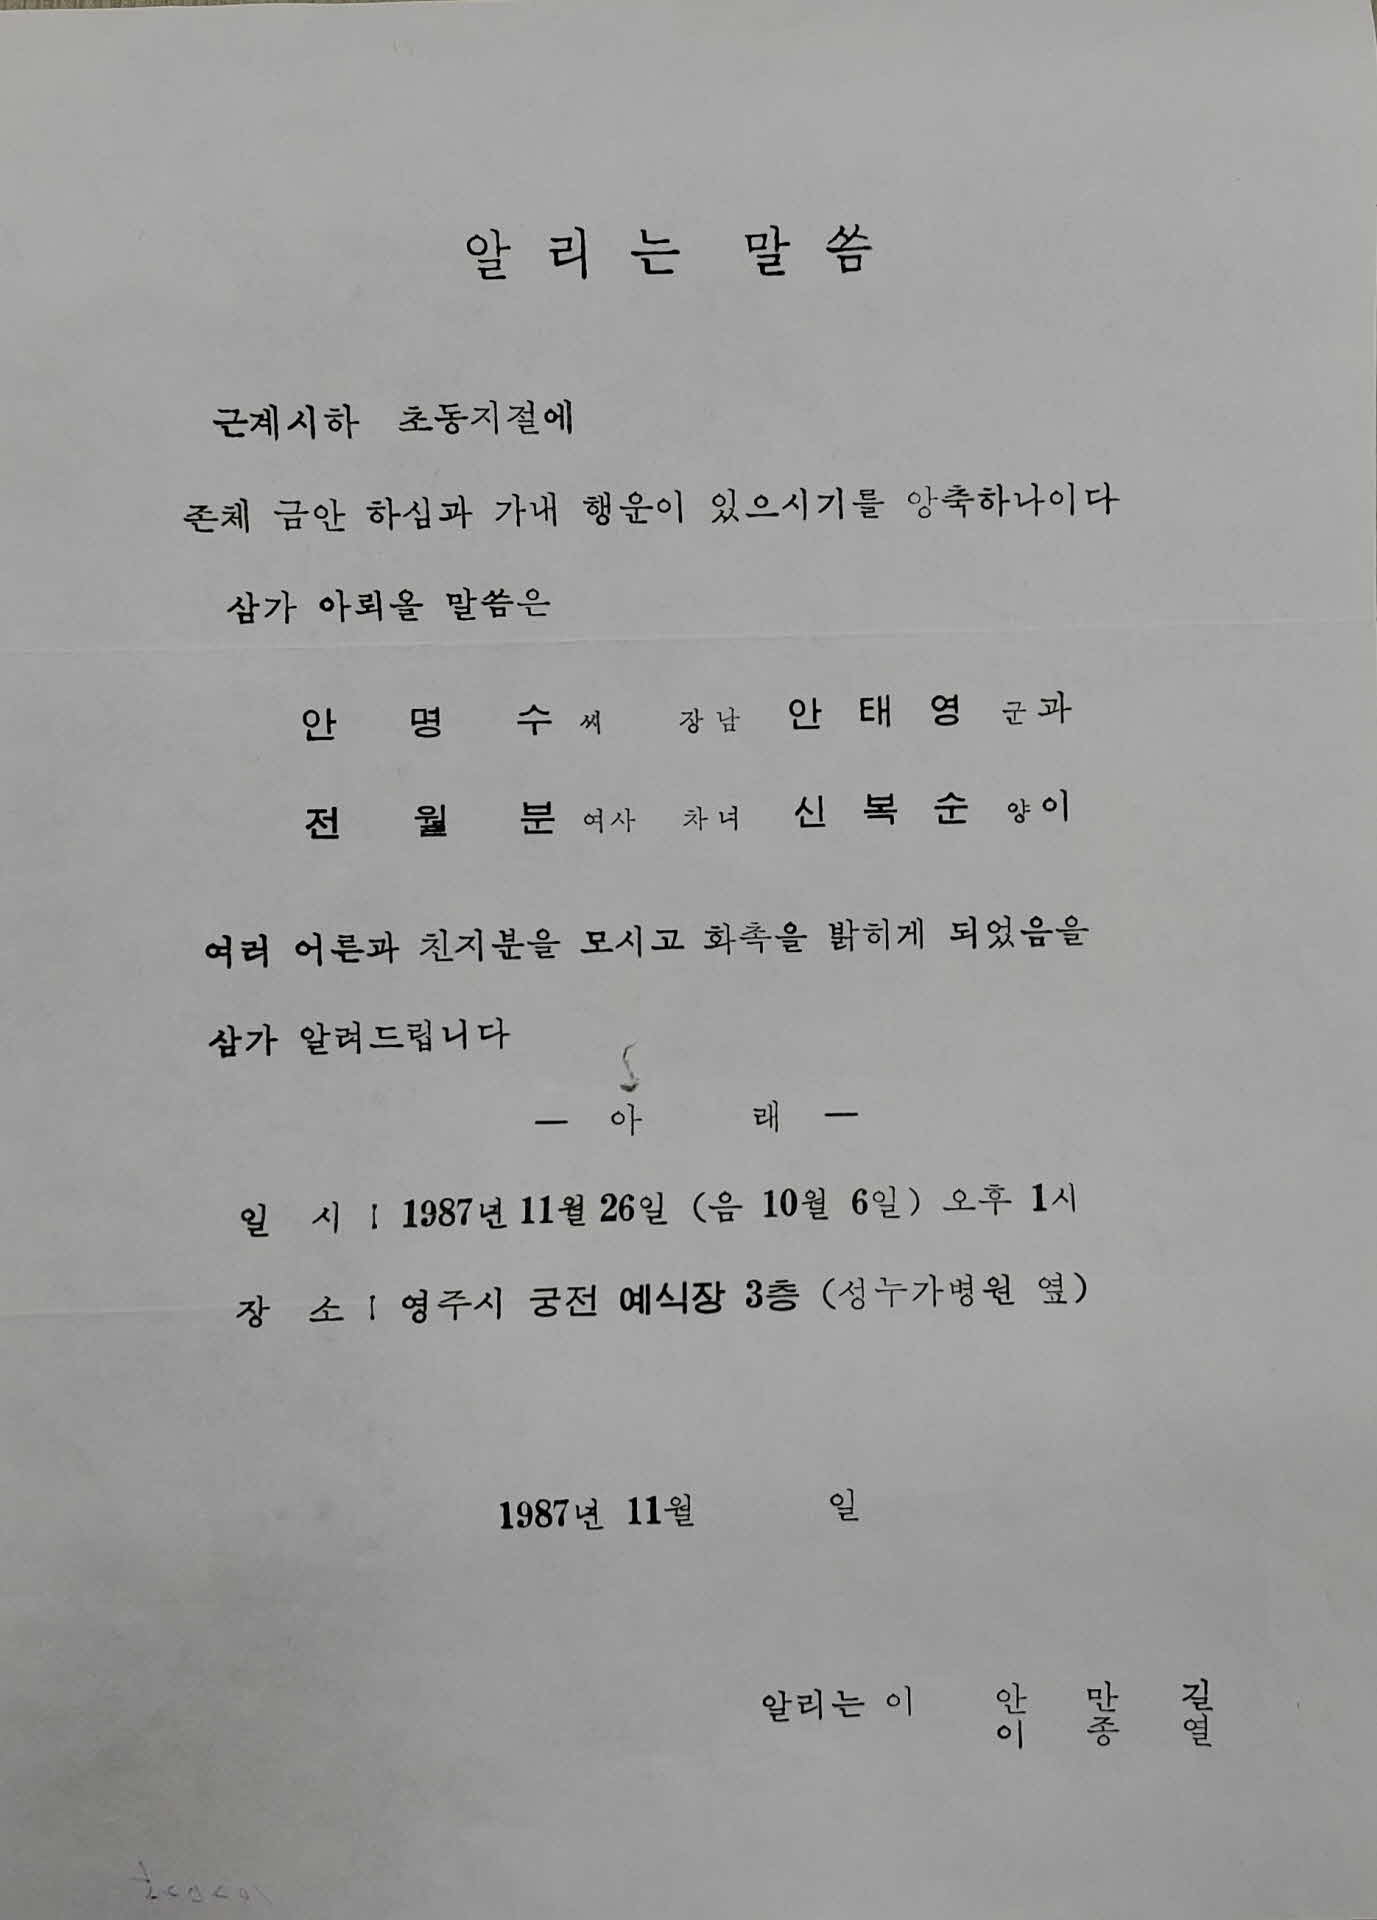 알리는 말씀
근계시하 초동지절에
존체 금안 하심과 가내 행운이 있으시기를 앙축하나이다
삼가 아뢰올 말씀은
안 명 수 씨 장남 안 태 영 군과
전 월 분 여사 차녀 신 복 순 양이
여러 어른과 친지분을 모시고 화촉을 밝히게 되었음을
삼가 알려드립니다
— 아 래 —
일 시 : 1987년 11월 26일 (음 10월 6일) 오후 1시
장 소 : 영주시 궁전 예식장 3층 (성누가병원 옆)
1987년 11월 일
알리는 이 안 만 길
이 종 열